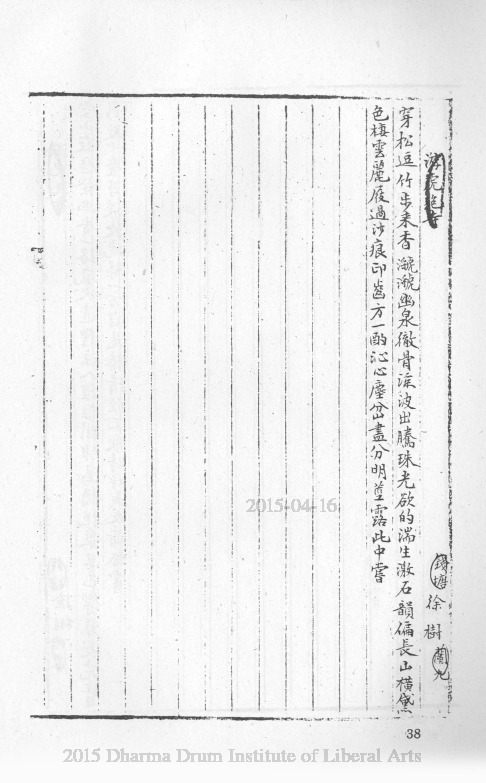 游虎跑寺
錢塘徐樹蘭九
穿松逗竹步來香㶁㶁幽泉徹骨涼波出騰珠光欲的湍生激石韻偏長山橫黛
色棲雲麗屐過沙痕印齒方一酌沁心塵岔盡分明薤露此中嘗
2015-04-16
38
2015 Dharma Drum Institute of Liberal Arts